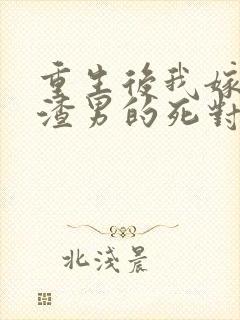 重生後我嫁
渣男的死對
北淺晨